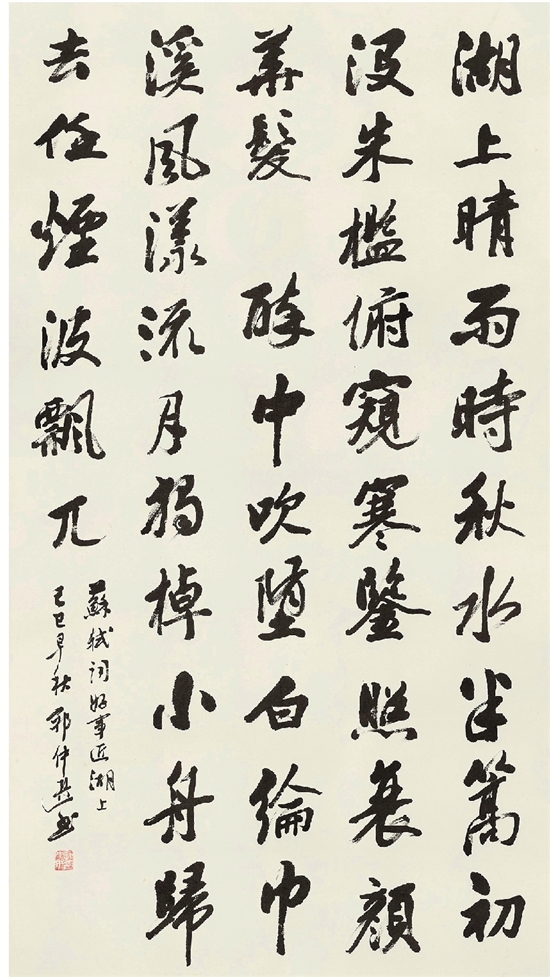 湖上晴雨時秋水半篙初
沒朱檻俯窺寒鑒照衰顏
華髮 醉中吹墮白綸巾
溪風漾流月獨棹小舟歸
去任煙波飄兀
蘇軾詞好事近湖上
己巳早秋 郭仲選書